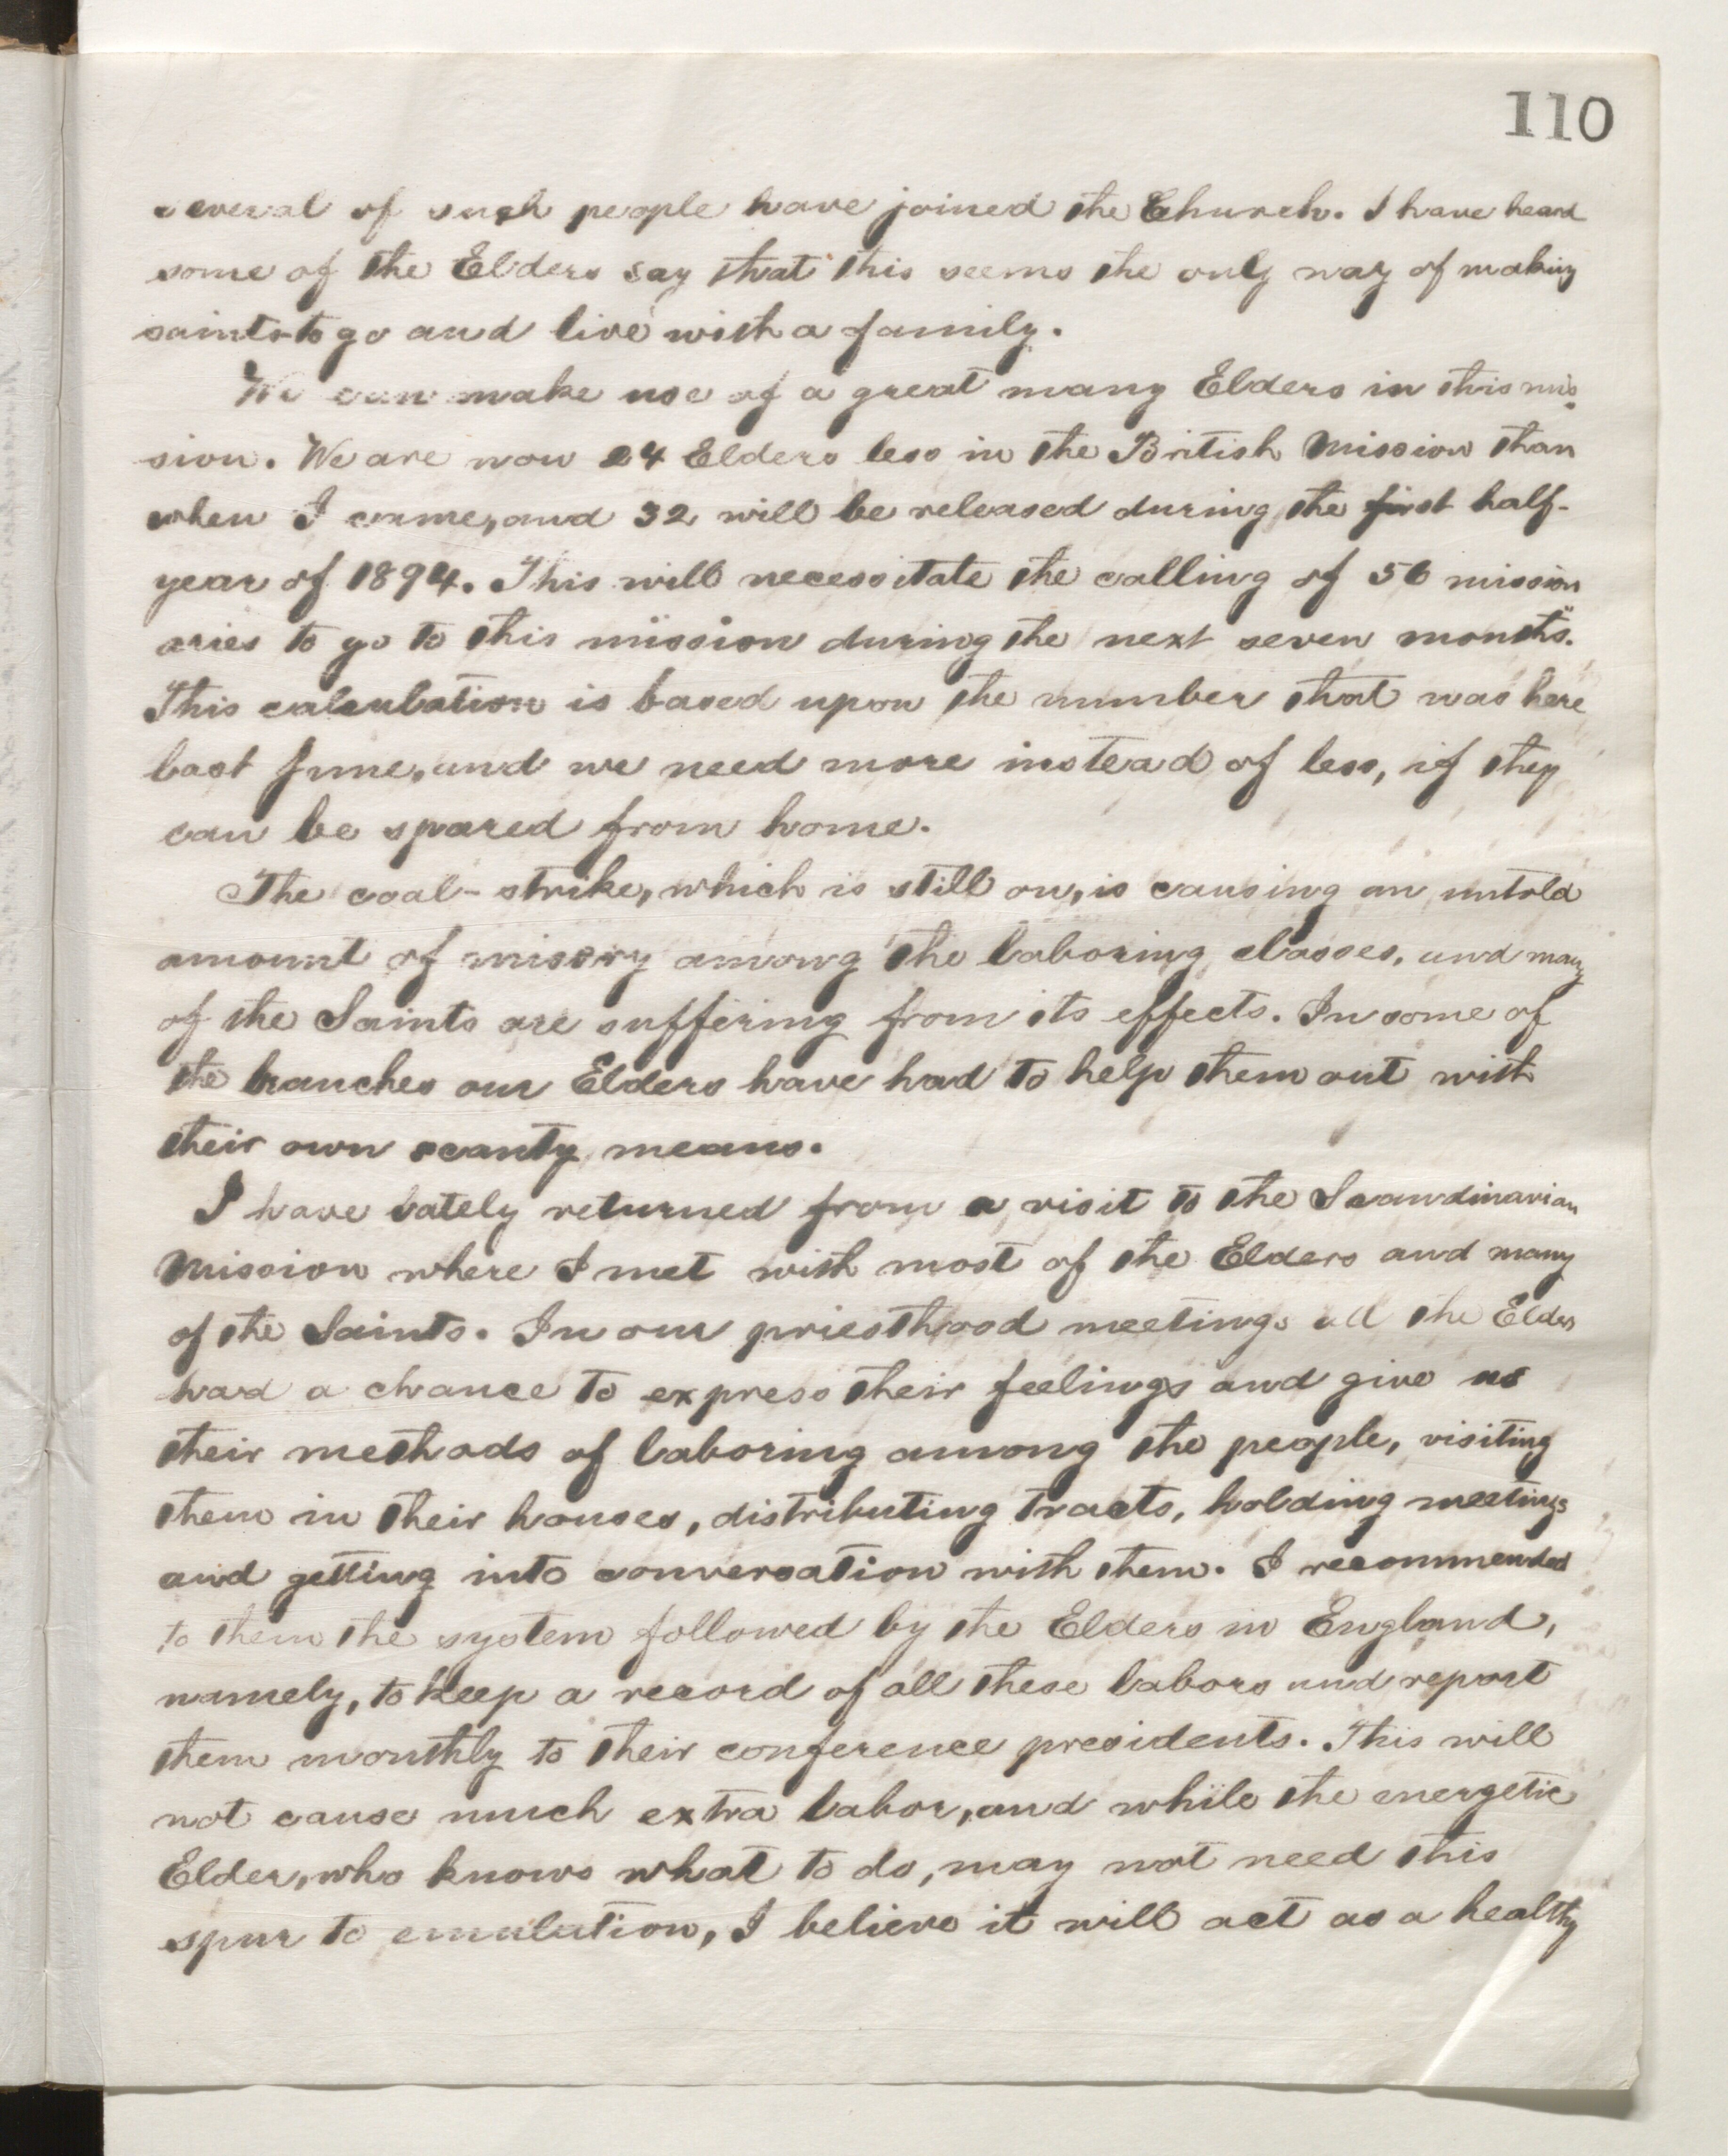 110
several of such people have joined the Church. I have heard
some of the Elders say that this seems the only way of making
saints to go and live with a family.
We can make use of a great many Elders in this mis-
sion. We are now 24 Elders less in the British Mission than
when I came, and 32 will be released during the first half-
year of 1894. This will necessitate the calling of 56 mission
aries to go to this mission during the next seven months.
This calculation is based upon the number that was here
last June, and we need more instead of less, if they
can be spared from home.
The coal-strike, which is still on, is causing an untold
amount of misery among the laboring classes, and many
of the Saints are suffering from its effects. In some of
the branches our Elders have had to help them out with
their own scanty means.
I have lately returned from a visit to the Scandinavian
Mission where I met with most of the Elders and many
of the Saints. In our priesthood meetings all the Elders
had a chance to express their feelings and give us
their methods of laboring among the people, visiting
them in their houses, distributing tracts, holding meetings
and getting into conversation with them. I recommended
to them the system followed by the Elders in England,
namely, to keep a record of all these labors and report
them monthly to their conference presidents. This will
not cause much extra labor, and while the energetic
Elder, who knows what to do, may not need this
spur to emulation, I believe it will act as a healthy